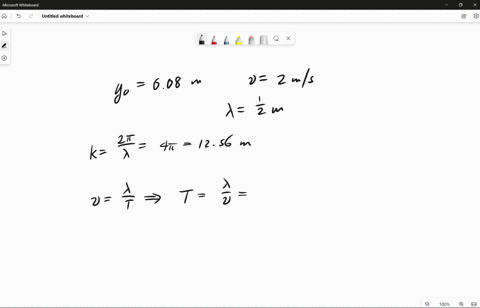 Microsoft Whiteboard
Untitled whiteboard
y₀ = 6.08 m v = 2 m/s
λ = 1/2 m
k = 2π/λ = 4π = 12.56 m
v = λ/T ⟹ T = λ/v =
100%